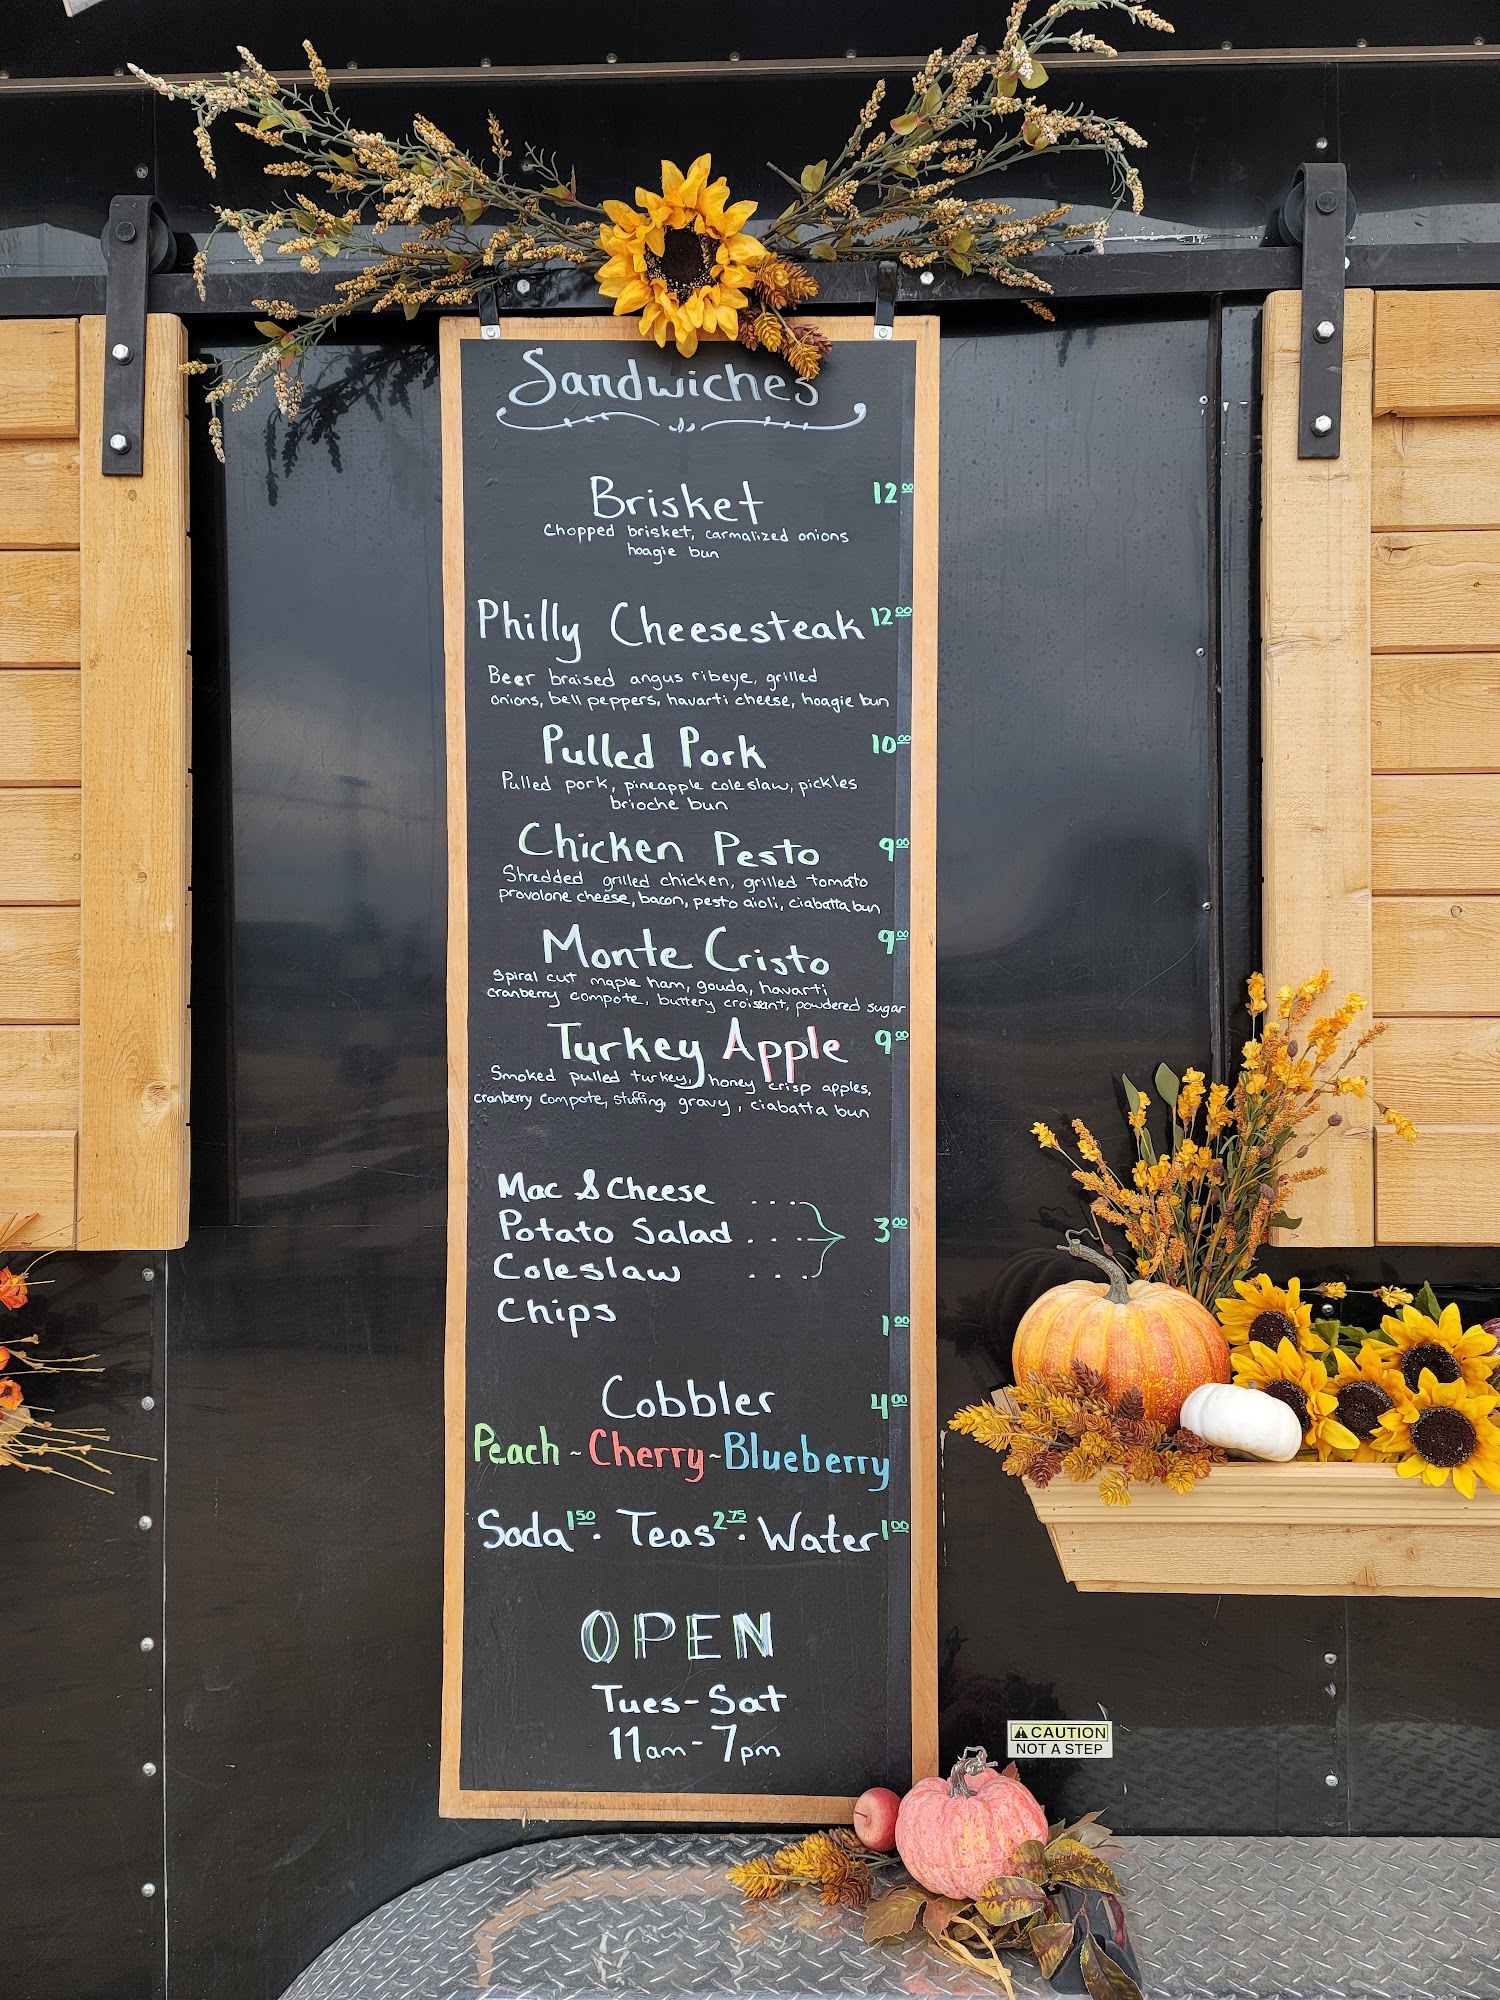 Sandwiches
Brisket 12.00
Chopped brisket, carmalized onions
hoagie bun
Philly Cheesesteak 12.00
Beer braised angus ribeye, grilled
onions, bell peppers, havarti cheese, hoagie bun
Pulled Pork 10.00
Pulled pork, pineapple coleslaw, pickles
brioche bun
Chicken Pesto 9.00
Shredded grilled chicken, grilled tomato
provolone cheese, bacon, pesto aioli, ciabatta bun
Monte Cristo 9.00
Spiral cut maple ham, gouda, havarti
cranberry compote, buttery croissant, powdered sugar
Turkey Apple 9.00
Smoked pulled turkey, honey crisp apples,
cranberry compote, stuffing, gravy, ciabatta bun
Mac & Cheese ...
Potato Salad ... 3.00
Coleslaw ...
Chips 1.00
Cobbler 4.00
Peach ~ Cherry ~ Blueberry
Soda 1.50 . Teas 2.75 . Water 1.00
OPEN
Tues - Sat
11am - 7pm
CAUTION
NOT A STEP